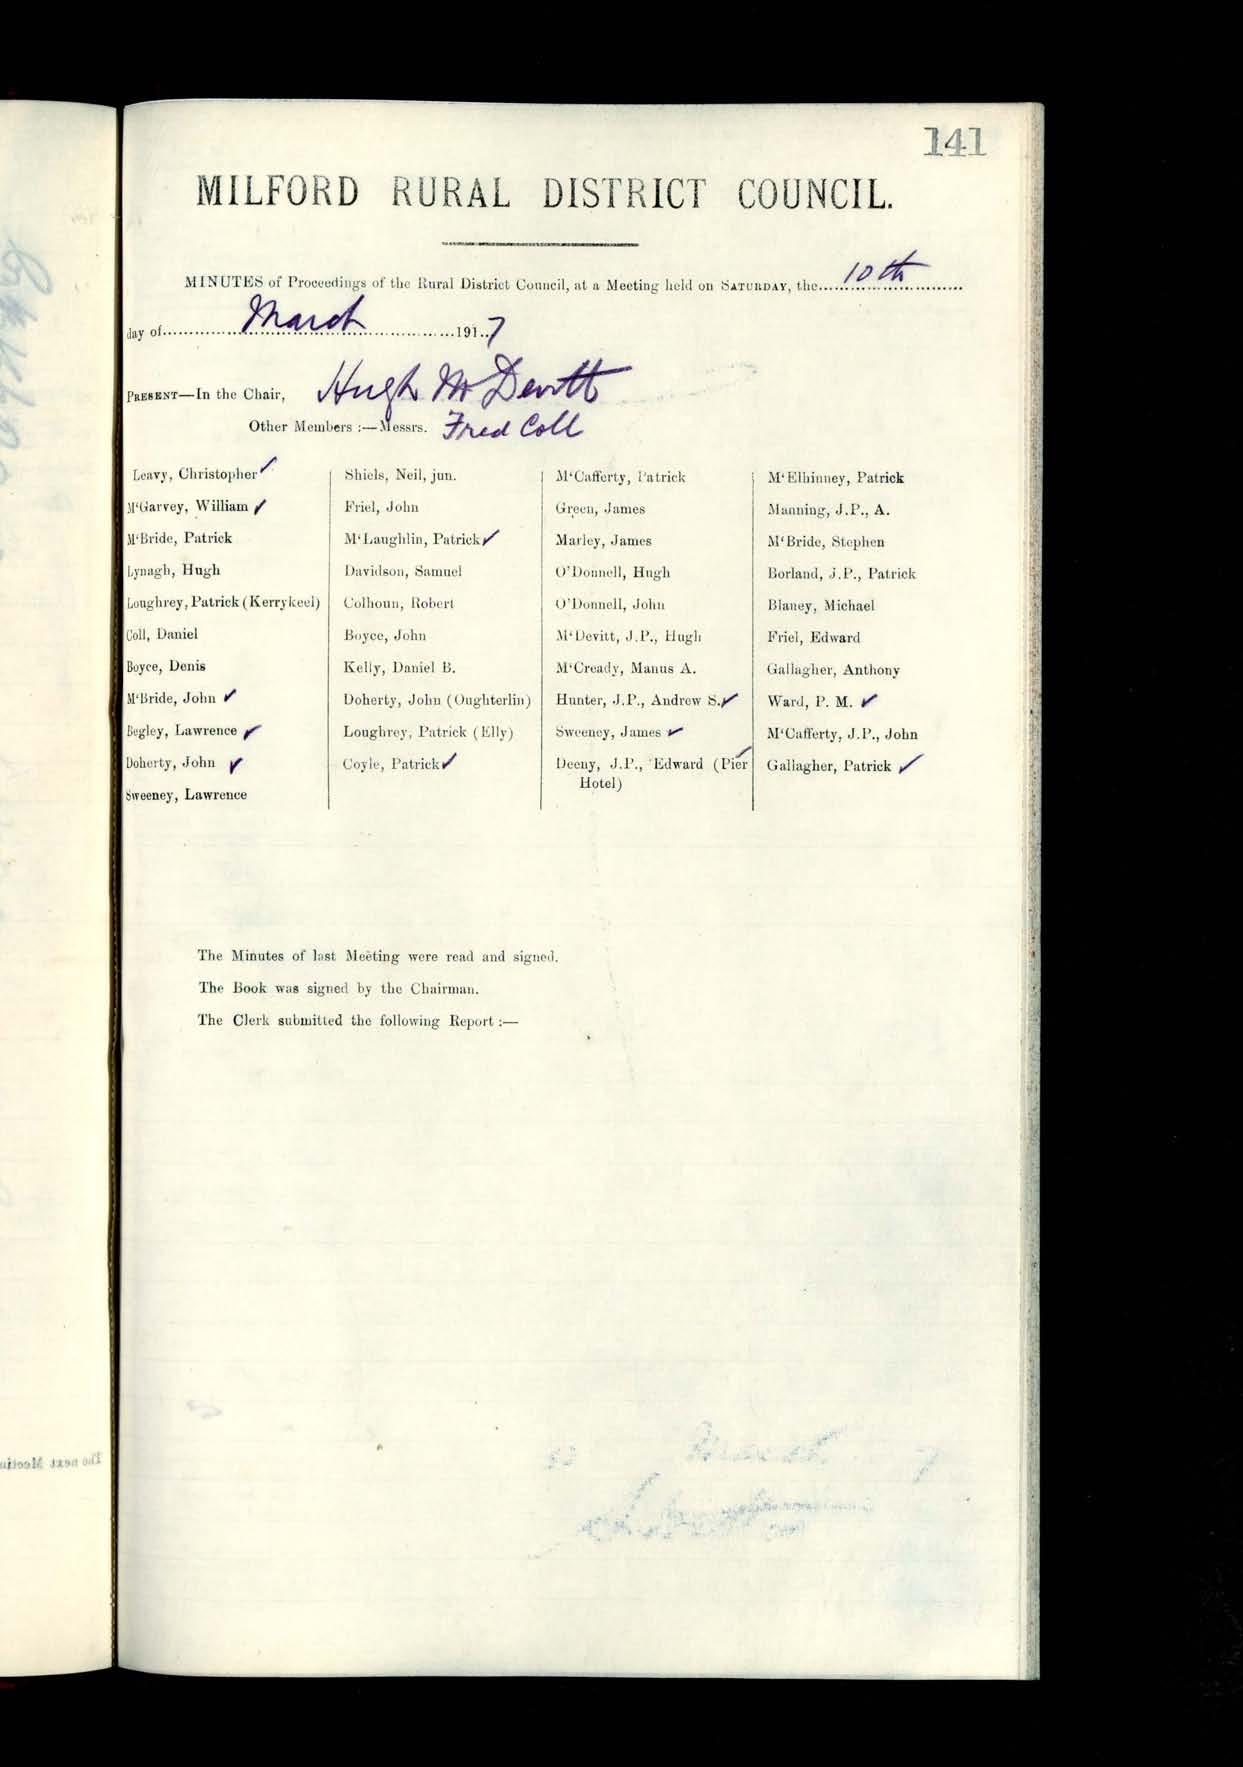 141
MILFORD RURAL DISTRICT COUNCIL.
MINUTES of Proceedings of the Rural District Council, at a Meeting held on SATURDAY, the 10th
day of March 1917
PRESENT—In the Chair, Hugh McDevitt
Other Members :—Messrs. Fred Coll
Leavy, Christopher ✓
M‘Garvey, William ✓
M‘Bride, Patrick
Lynagh, Hugh
Loughrey, Patrick (Kerrykeel)
Coll, Daniel
Boyce, Denis
M‘Bride, John ✓
Begley, Lawrence ✓
Doherty, John ✓
Sweeney, Lawrence
Shiels, Neil, jun.
Friel, John
M‘Laughlin, Patrick ✓
Davidson, Samuel
Colhoun, Robert
Boyce, John
Kelly, Daniel B.
Doherty, John (Oughterlin)
Loughrey, Patrick (Elly)
Coyle, Patrick ✓
M‘Cafferty, Patrick
Green, James
Marley, James
O'Donnell, Hugh
O'Donnell, John
M‘Devitt, J.P., Hugh
M‘Cready, Manus A.
Hunter, J.P., Andrew S. ✓
Sweeney, James ✓
Deeny, J.P., Edward (Pier ✓
Hotel)
M‘Elhinney, Patrick
Manning, J.P., A.
M‘Bride, Stephen
Borland, J.P., Patrick
Blaney, Michael
Friel, Edward
Gallagher, Anthony
Ward, P. M. ✓
M‘Cafferty, J.P., John
Gallagher, Patrick ✓
The Minutes of last Meeting were read and signed.
The Book was signed by the Chairman.
The Clerk submitted the following Report :—